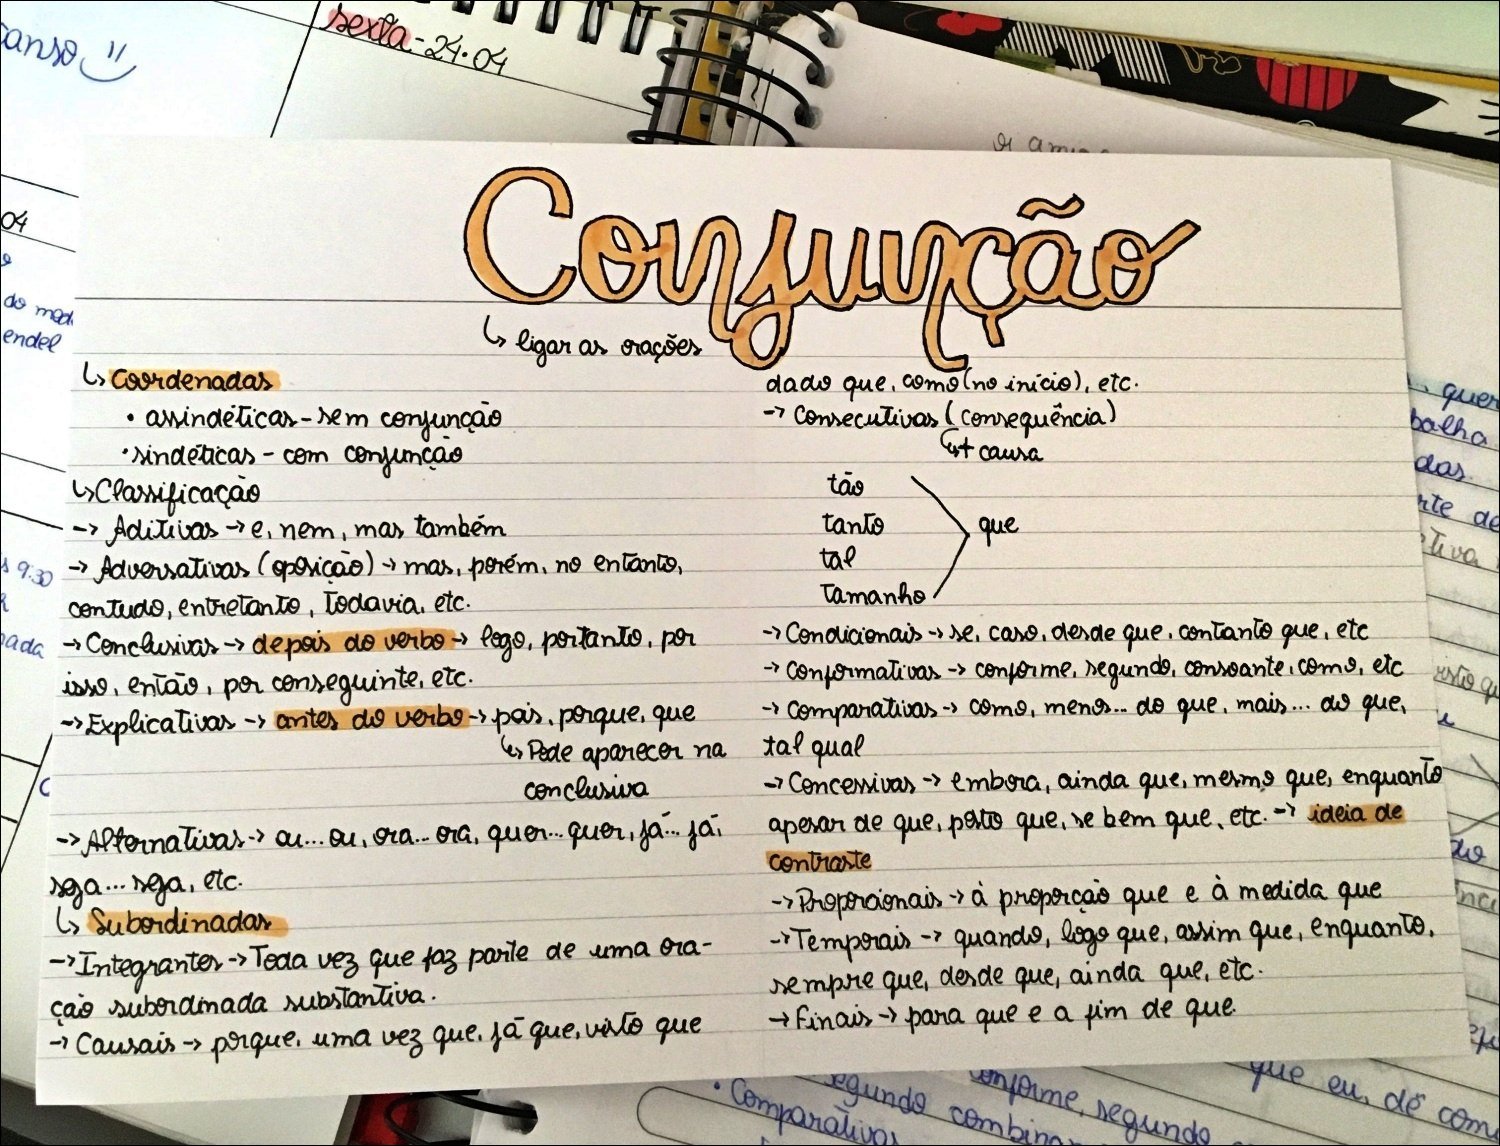 sexta - 24.04
Conjunção
↳ ligar as orações
↳ Coordenadas
• assindéticas - sem conjunção
• sindéticas - com conjunção
↳ Classificação
→ Aditivas → e, nem, mas também
→ Adversativas (oposição) → mas, porém, no entanto,
contudo, entretanto, todavia, etc.
→ Conclusivas → depois do verbo → logo, portanto, por
isso, então, por conseguinte, etc.
→ Explicativas → antes do verbo → pois, porque, que
↳ Pode aparecer na
conclusiva
→ Alternativas → ou... ou, ora... ora, quer... quer, já... já,
seja... seja, etc.
↳ Subordinadas
→ Integrantes → Toda vez que faz parte de uma ora-
ção subordinada substantiva.
→ Causais → porque, uma vez que, já que, visto que
dado que, como (no início), etc.
→ Consecutivas (consequência)
↳ + causa
tão
tanto
que
tal
tamanho
→ Condicionais → se, caso, desde que, contanto que, etc
→ Conformativas → conforme, segundo, consoante, como, etc
→ Comparativas → como, menos... do que, mais... do que,
tal qual
→ Concessivas → embora, ainda que, mesmo que, enquanto
apesar de que, posto que, se bem que, etc. → ideia de
contraste
→ Proporcionais → à proporção que e à medida que
→ Temporais → quando, logo que, assim que, enquanto,
sempre que, desde que, ainda que, etc.
→ Finais → para que e a fim de que
04
do
endel
9:30
quer
que eu, dê
segundo
conforme, segundo
• Comparativas